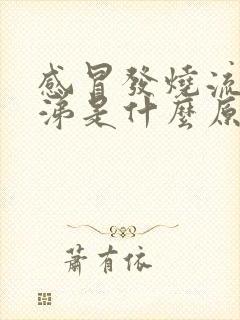 感冒發燒流
涕是什麼原
蕭有依